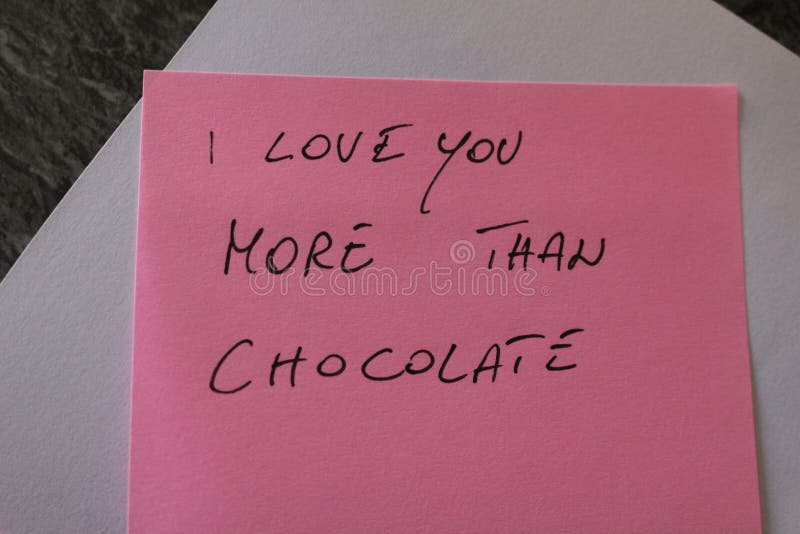 I LOVE YOU
MORE THAN
CHOCOLATE
dreamstime.com